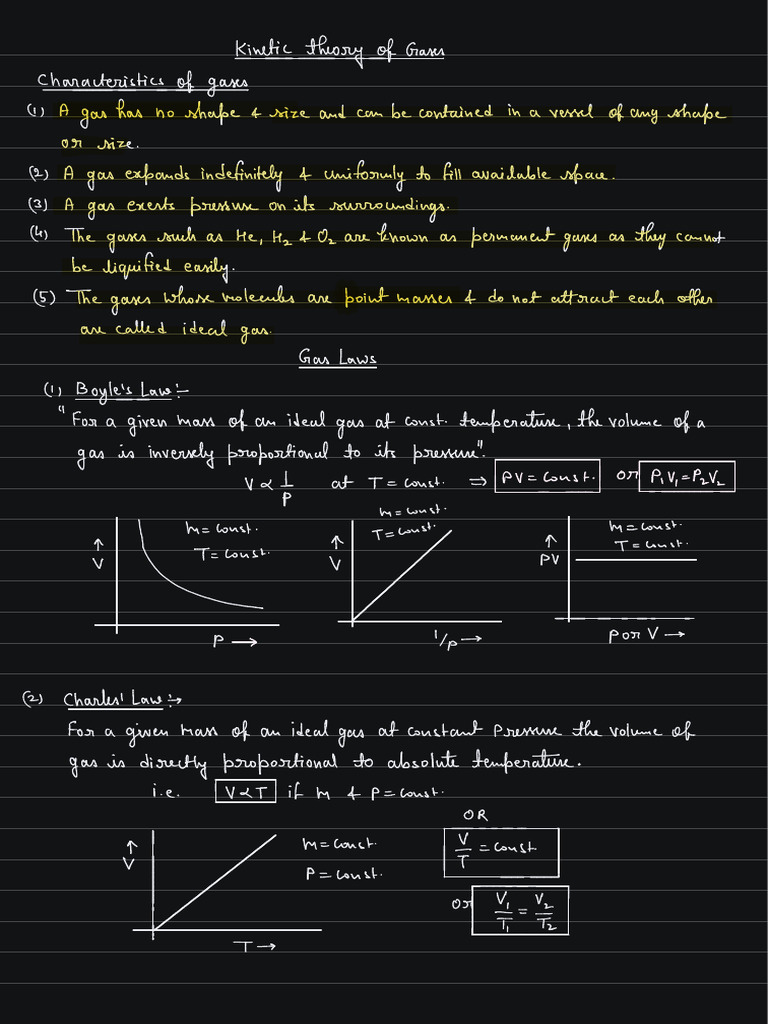 Kinetic theory of Gases
Characteristics of gases
(1) A gas has no shape & size and can be contained in a vessel of any shape
or size.
(2) A gas expands indefinitely & uniformly to fill available space.
(3) A gas exerts pressure on its surroundings.
(4) The gases such as He, H₂ & O₂ are known as permanent gases as they cannot
be liquified easily.
(5) The gases whose molecules are point masses & do not attract each other
are called ideal gas.
Gas Laws
(1) Boyle's Law:-
"For a given mass of an ideal gas at const. temperature, the volume of a
gas is inversely proportional to its pressure".
V ∝ 1/P at T = const. ⇒ PV = const. OR P₁V₁ = P₂V₂
m = const.
T = const.
↑
V
P →
m = const.
T = const.
↑
V
1/P →
m = const.
T = const.
↑
PV
P or V →
(2) Charles' Law:→
For a given mass of an ideal gas at constant Pressure the volume of
gas is directly proportional to absolute temperature.
i.e. V ∝ T if m & P = const.
↑
V
T →
m = const.
P = const.
OR
V/T = const
OR V₁/T₁ = V₂/T₂